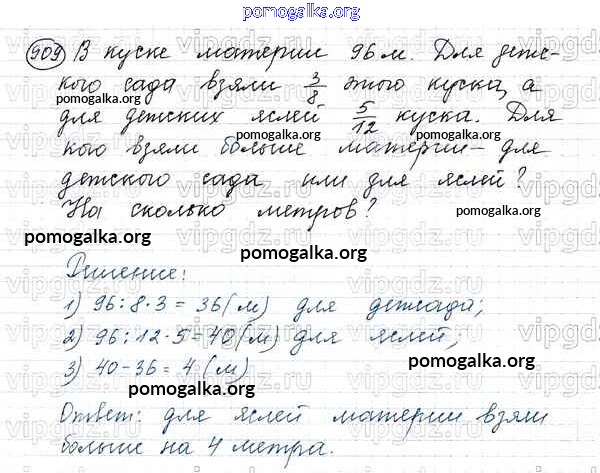 pomogalka.org
909 В куске материи 96 м. Для детс-
кого сада взяли 3/8 этого куска, а
pomogalka.org pomogalka.org
для детских яслей 5/12 куска. Для
pomogalka.org
кого взяли больше материи – для
детского сада или для яслей?
На сколько метров?
pomogalka.org
pomogalka.org
pomogalka.org
Решение:
1) 96:8·3=36(м) для детсада;
2) 96:12·5=40(м) для яслей;
3) 40-36=4(м)
pomogalka.org
pomogalka.org
Ответ: для яслей материи взяли
больше на 4 метра.
vipgdz.ru